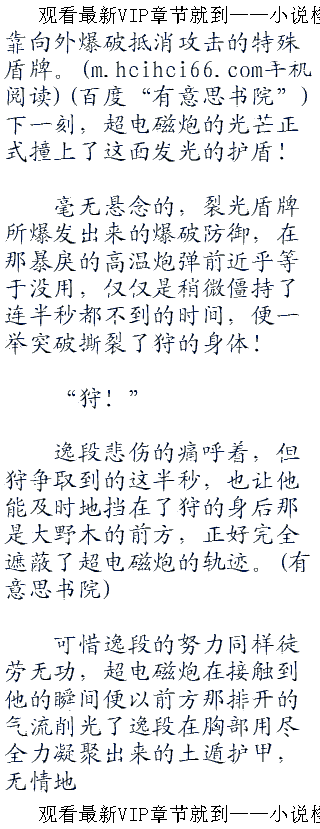 观看最新VIP章节就到——小说检
靠向外爆破抵消攻击的特殊
盾牌。(m.hcihci66.com手机
阅读)(百度“有意思书院”)
下一刻，超电磁炮的光芒正
式撞上了这面发光的护盾！
毫无悬念的，裂光盾牌
所爆发出来的爆破防御，在
那暴戾的高温炮弹前近乎等
于没用，仅仅是稍微僵持了
连半秒都不到的时间，便一
举突破撕裂了狩的身体！
“狩！”
逸段悲伤的痛呼着，但
狩争取到的这半秒，也让他
能及时地挡在了狩的身后那
是大野木的前方，正好完全
遮蔽了超电磁炮的轨迹。(有
意思书院)
可惜逸段的努力同样徒
劳无功，超电磁炮在接触到
他的瞬间便以前方那排开的
气流削光了逸段在胸部用尽
全力凝聚出来的土遁护甲，
无情地
观看最新VIP章节就到——小说检